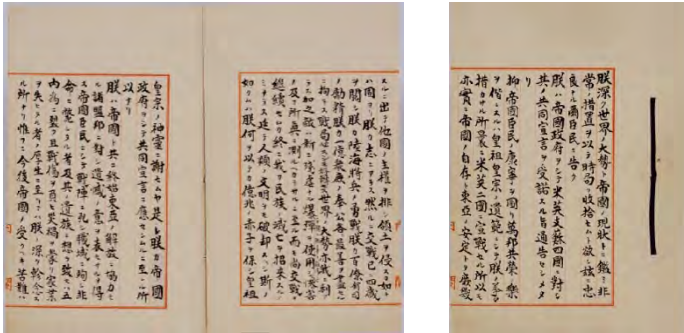 朕深ク世界ノ大勢ト帝國ノ現状トニ鑑ミ非
常ノ措置ヲ以テ時局ヲ收拾セムト欲シ茲ニ忠
良ナル爾臣民ニ告ク
朕ハ帝國政府ヲシテ米英支蘇四國ニ對シ
其ノ共同宣言ヲ受諾スル旨通告セシメタ
リ
抑帝國臣民ノ康寧ヲ圖リ萬邦共榮ノ樂
ヲ偕ニスルハ皇祖皇宗ノ遺範ニシテ朕ノ拳々
措カサル所曩ニ米英二國ニ宣戰セル所以モ
亦實ニ帝國ノ自存ト東亞ノ安定トヲ庶幾
スルニ出テ他國ノ主權ヲ排シ領土ヲ侵スカ如
キハ固ヨリ朕カ志ニアラス然ルニ交戰已ニ四歳
ヲ閲シ朕カ陸海將兵ノ勇戰朕カ百僚有司
ノ勵精朕カ一億衆庶ノ奉公各最善ヲ盡セル
ニ拘ラス戰局必スシモ好轉セス世界ノ大勢亦我ニ利アラス
加之敵ハ新ニ殘虐ナル爆彈ヲ使用シ
ノ及フ所眞ニ測ルヘカラサルニ至ル而モ尚交戰ヲ
繼續セムカ終ニ我カ民族ノ滅亡ヲ招來スルノ
ミナラス延テ人類ノ文明ヲモ破却スヘシ斯ノ
如クムハ朕何ヲ以テカ億兆ノ赤子ヲ保シ皇祖
皇宗ノ神靈ニ謝セムヤ是レ朕カ帝國
政府ヲシテ共同宣言ニ應セシムルニ至レル所
以ナリ
朕ハ帝國ト共ニ終始東亞ノ解放ニ協力セ
ル諸盟邦ニ對シ遺憾ノ意ヲ表セサルヲ得
ス帝國臣民ニシテ戰陣ニ死シ職域ニ殉シ非
命ニ斃レタル者及其ノ遺族ニ想ヲ致セハ五
内爲ニ裂ク且戰傷ヲ負ヒ災禍ヲ蒙リ家業
ヲ失ヒタル者ノ厚生ニ至リテハ朕ノ深ク軫念ス
ル所ナリ惟フニ今後帝國ノ受クヘキ苦難ハ